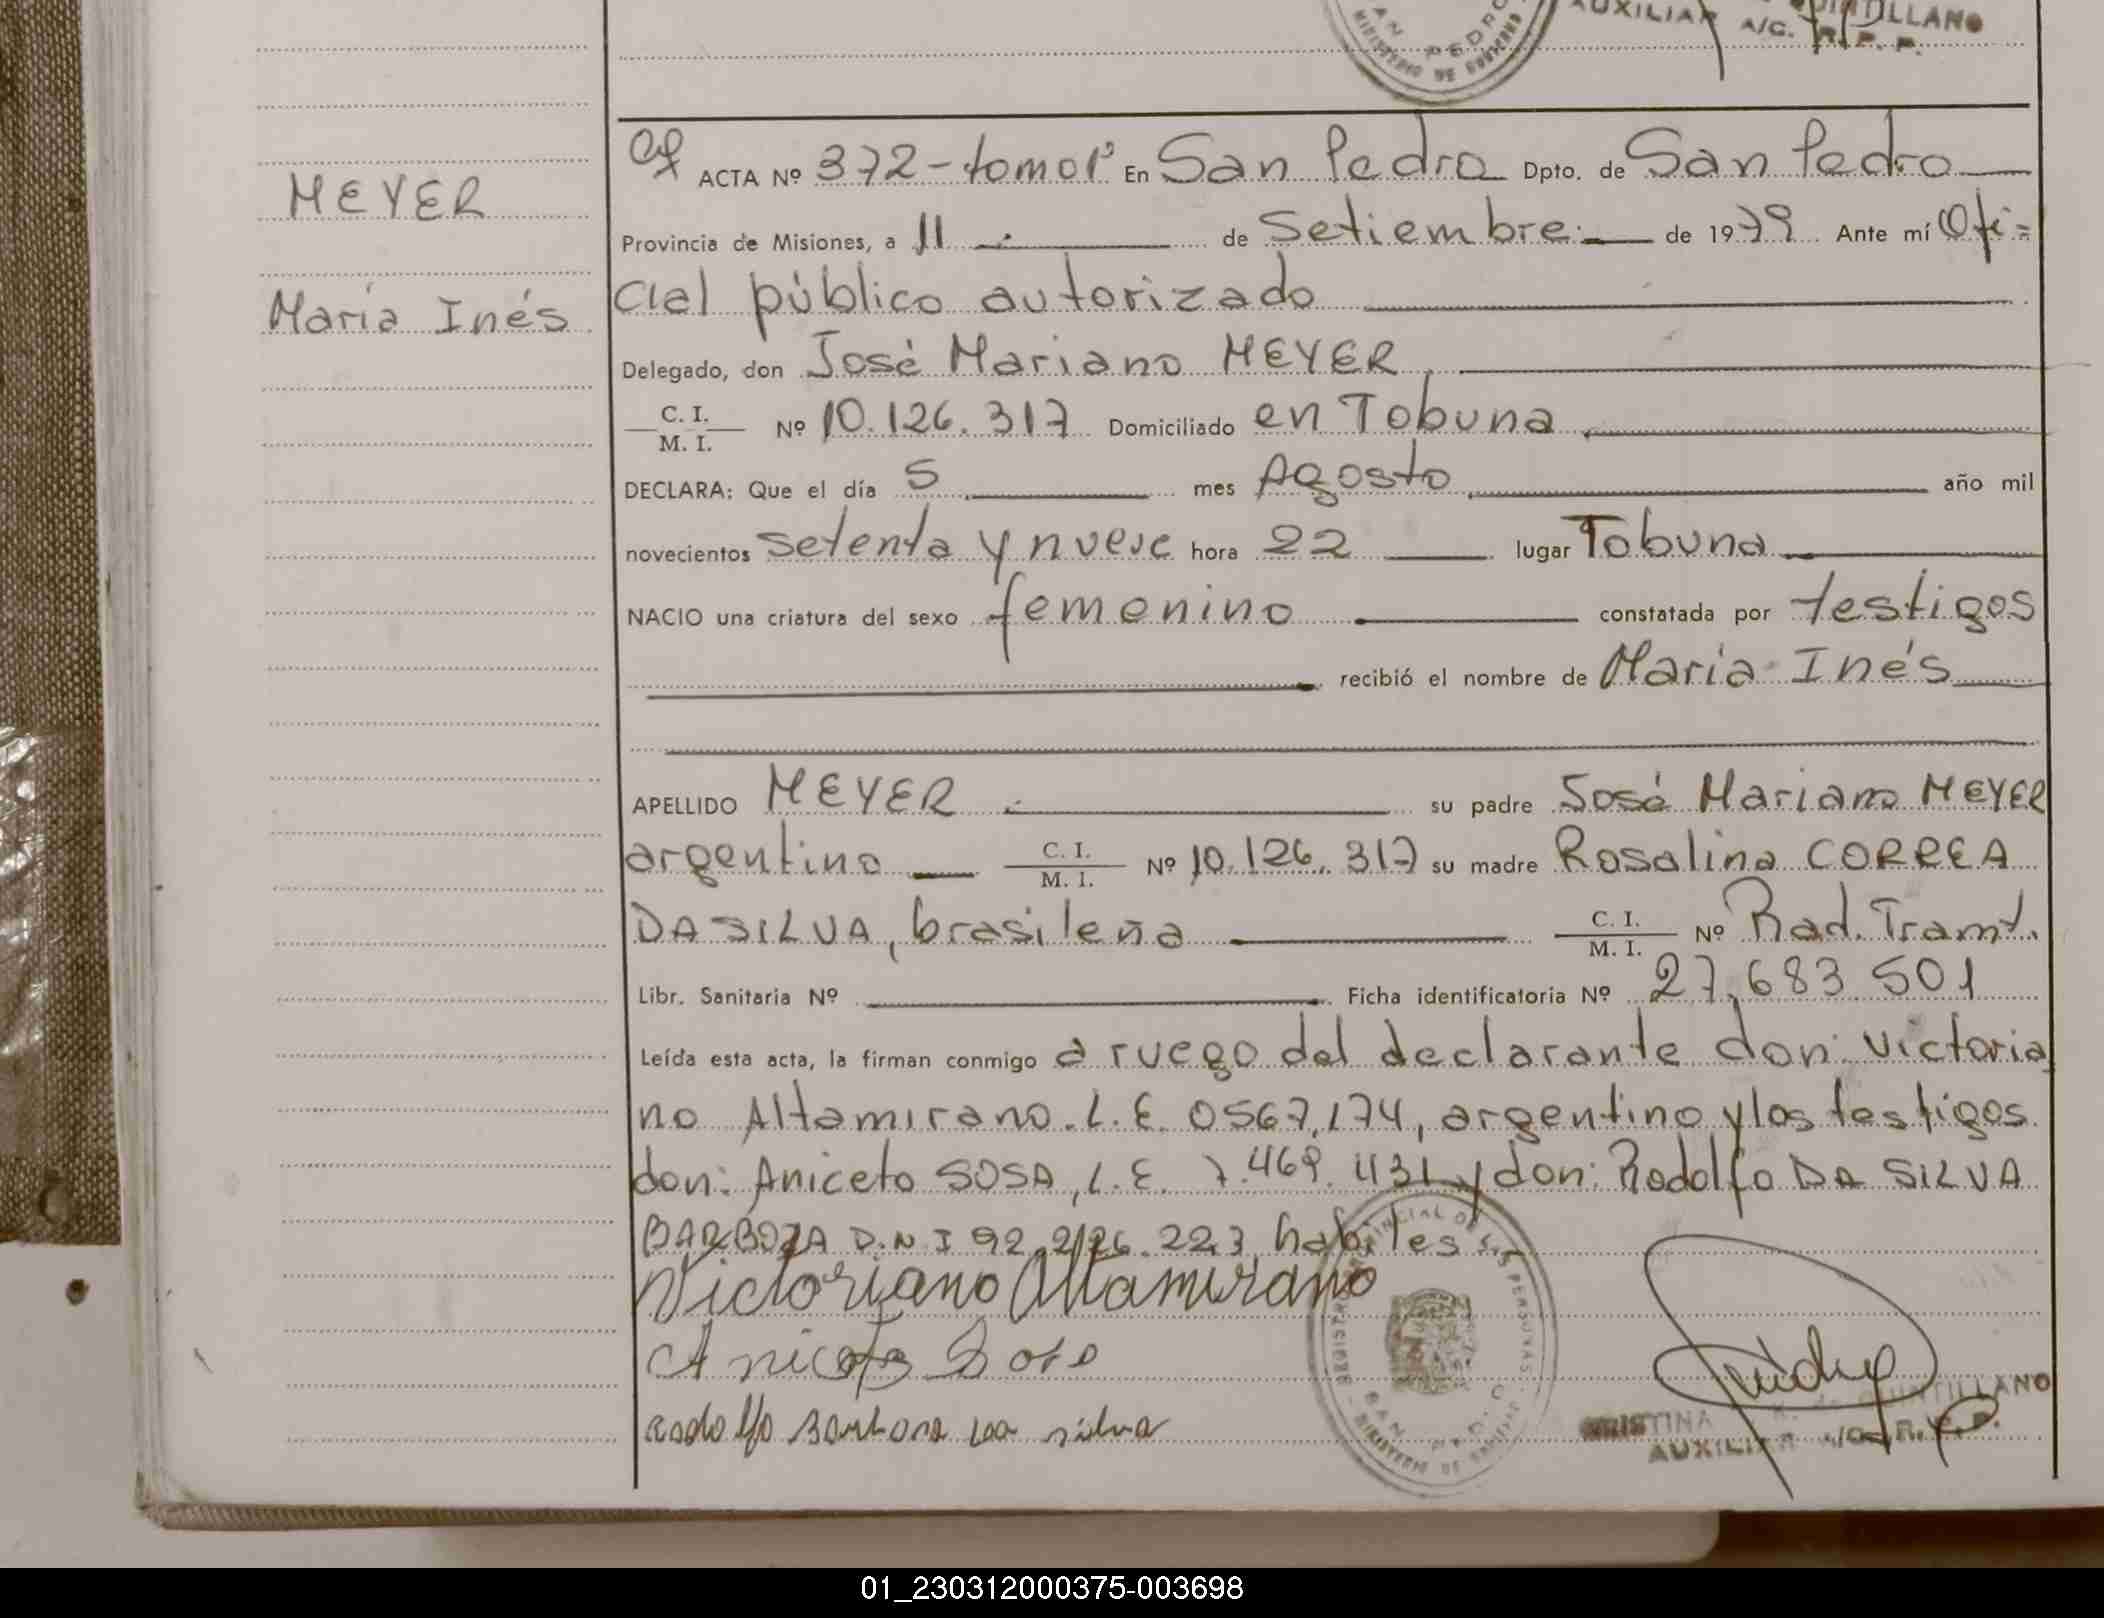 AUXILIAR A/C. R. P. P.
SAN PEDRO
MINISTERIO DE GOBIERNO
MEYER
María Inés
ACTA Nº 372-tomo1º En San Pedro Dpto. de San Pedro
Provincia de Misiones, a 11 de Setiembre de 1979 Ante mí Ofi=
cial público autorizado
Delegado, don José Mariano MEYER
C. I. / M. I. Nº 10.126.317 Domiciliado en Tobuna
DECLARA: Que el día 5 mes Agosto año mil
novecientos setenta y nueve hora 22 lugar Tobuna
NACIO una criatura del sexo femenino constatada por testigos
recibió el nombre de María Inés
APELLIDO MEYER su padre José Mariano MEYER
argentino C. I. / M. I. Nº 10.126.317 su madre Rosalina CORREA
DA SILVA, brasileña C. I. / M. I. Nº Rad. Tramt.
Libr. Sanitaria Nº Ficha identificatoria Nº 27,683 501
Leída esta acta, la firman conmigo a ruego del declarante don: Victoria
no Altamirano. L.E. 0567,174, argentino y los testigos
don: Aniceto SOSA, L.E. 7.469.431 y don: Rodolfo DA SILVA
BARBOZA D.N.I 92.226.223 habiles
Victoriano Altamirano
Aniceto Soso
Rodolfo Barboza da silva
CRISTINA QUINTILLANO
AUXILIAR A/C. R. P. P.
01_230312000375-003698